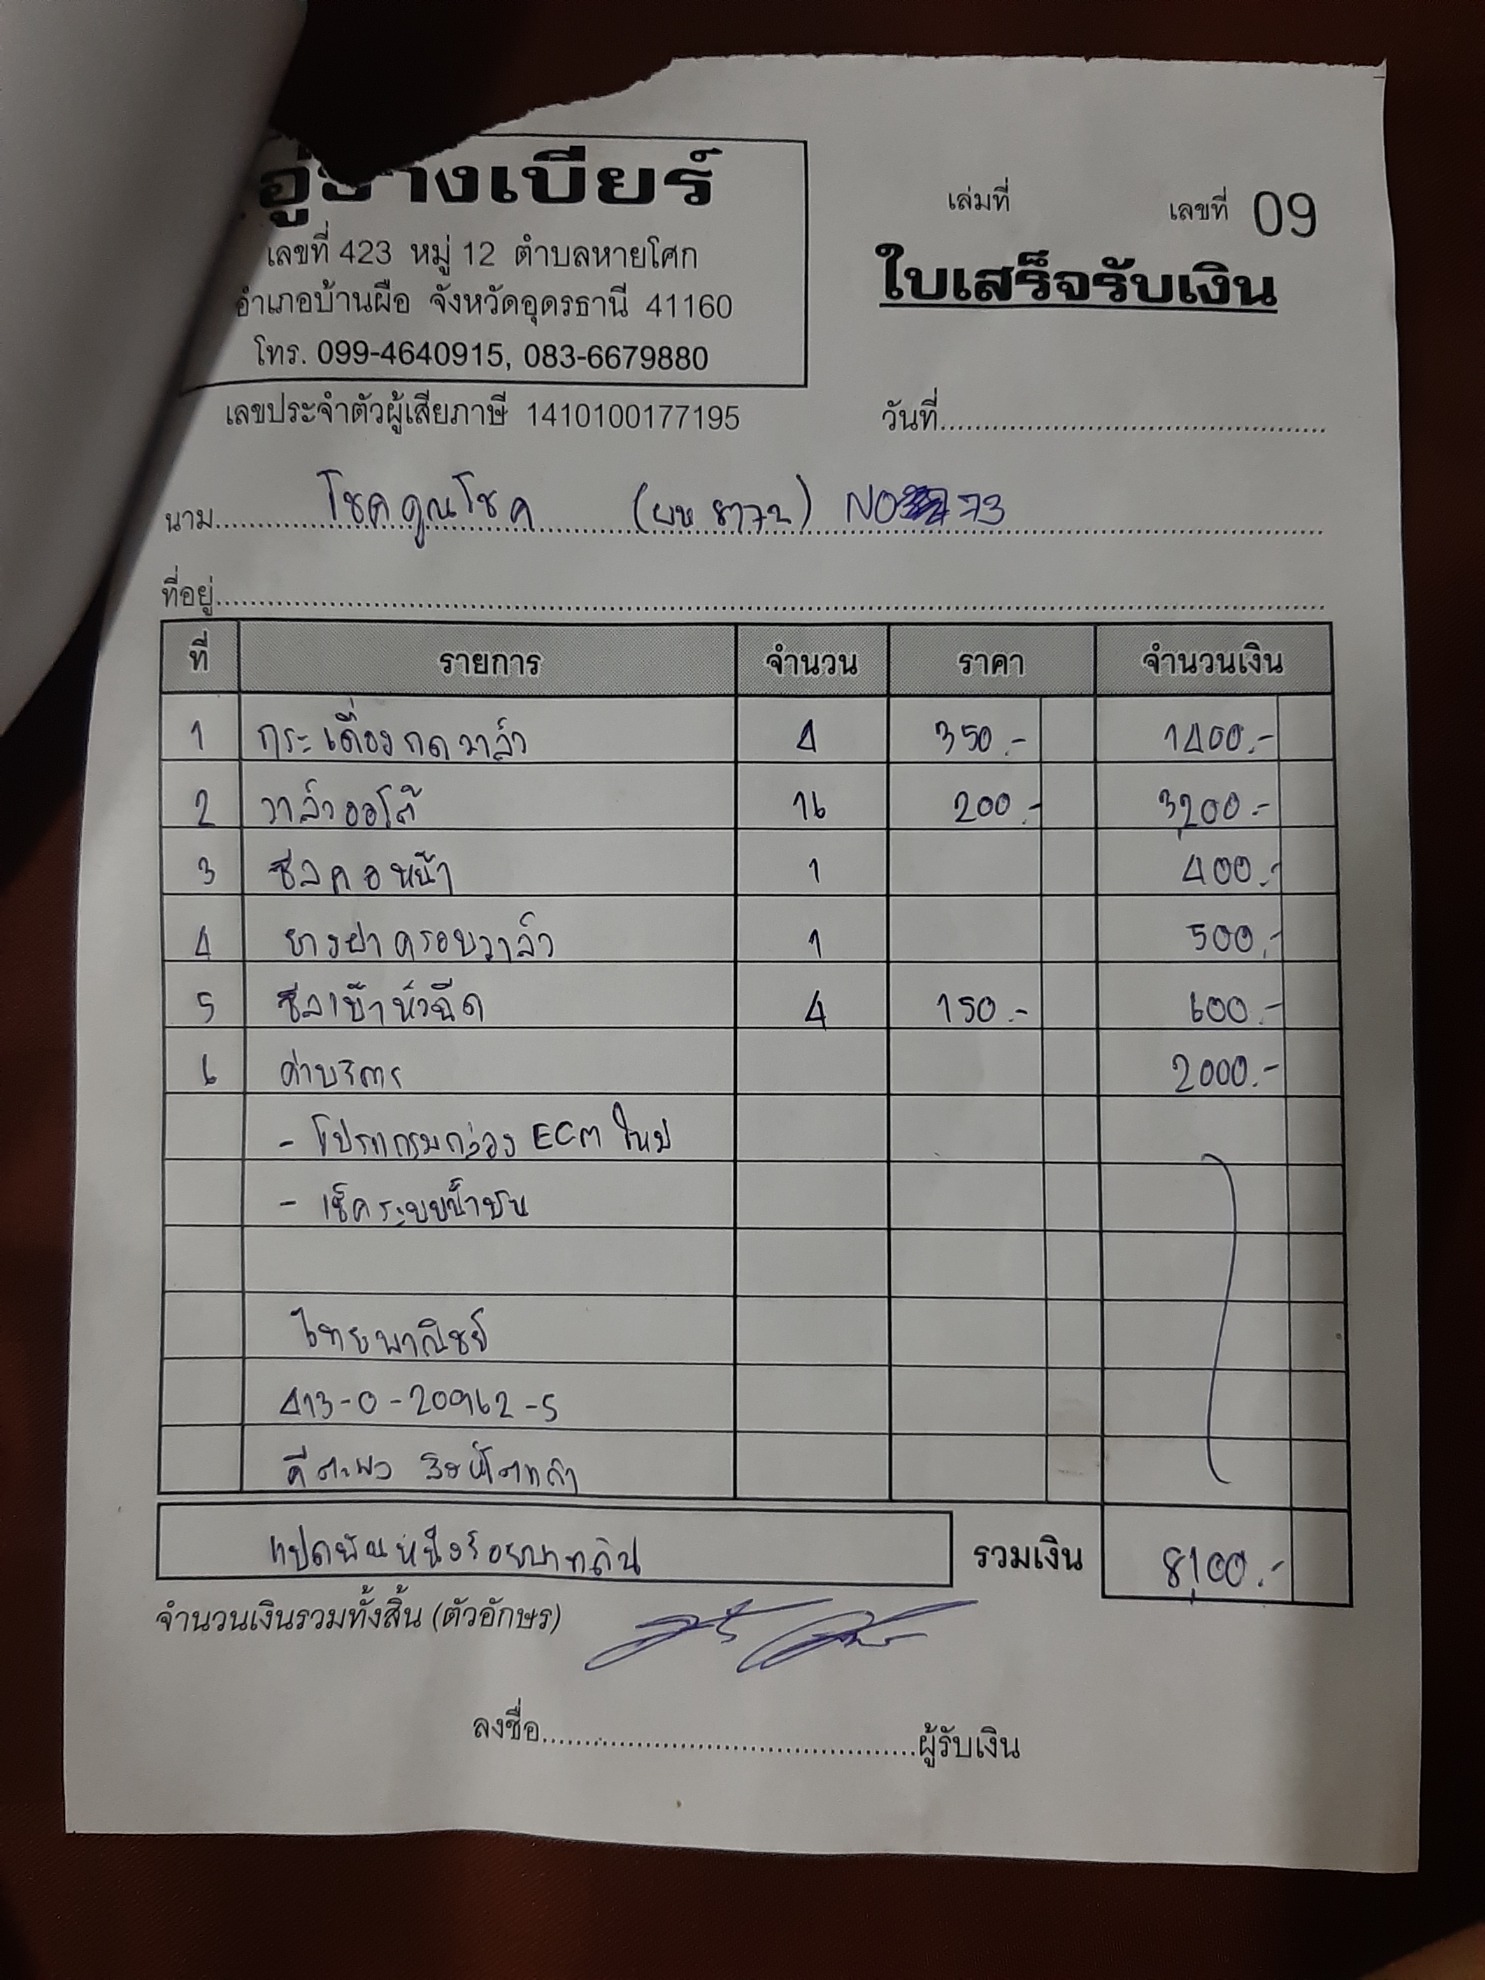 อู่ช่างเบียร์
เลขที่ 423 หมู่ 12 ตำบลหายโศก
อำเภอบ้านผือ จังหวัดอุดรธานี 41160
โทร. 099-4640915, 083-6679880
เลขประจำตัวผู้เสียภาษี 1410100177195
เล่มที่ เลขที่ 09
ใบเสร็จรับเงิน
วันที่
นาม โชคคูณโชค (ผห 8172) NO 73
ที่อยู่
ที่ รายการ จำนวน ราคา จำนวนเงิน
1 กระเดื่องกดวาล์ว 4 350.- 1400.-
2 วาล์วออโต้ 16 200.- 3,200.-
3 ซีลคอหน้า 1 400.-
4 ยางฝาครอบวาล์ว 1 500.-
5 ซีลเบ้าหัวฉีด 4 150.- 600.-
6 ค่าบริการ 2000.-
- โปรแกรมกล่อง ECM ใหม่
- เช็คระบบน้ำมัน
ไทยพาณิชย์
413-0-20962-5
แปดพันหนึ่งร้อยบาทถ้วน รวมเงิน 8,100.-
จำนวนเงินรวมทั้งสิ้น (ตัวอักษร)
ลงชื่อ ผู้รับเงิน